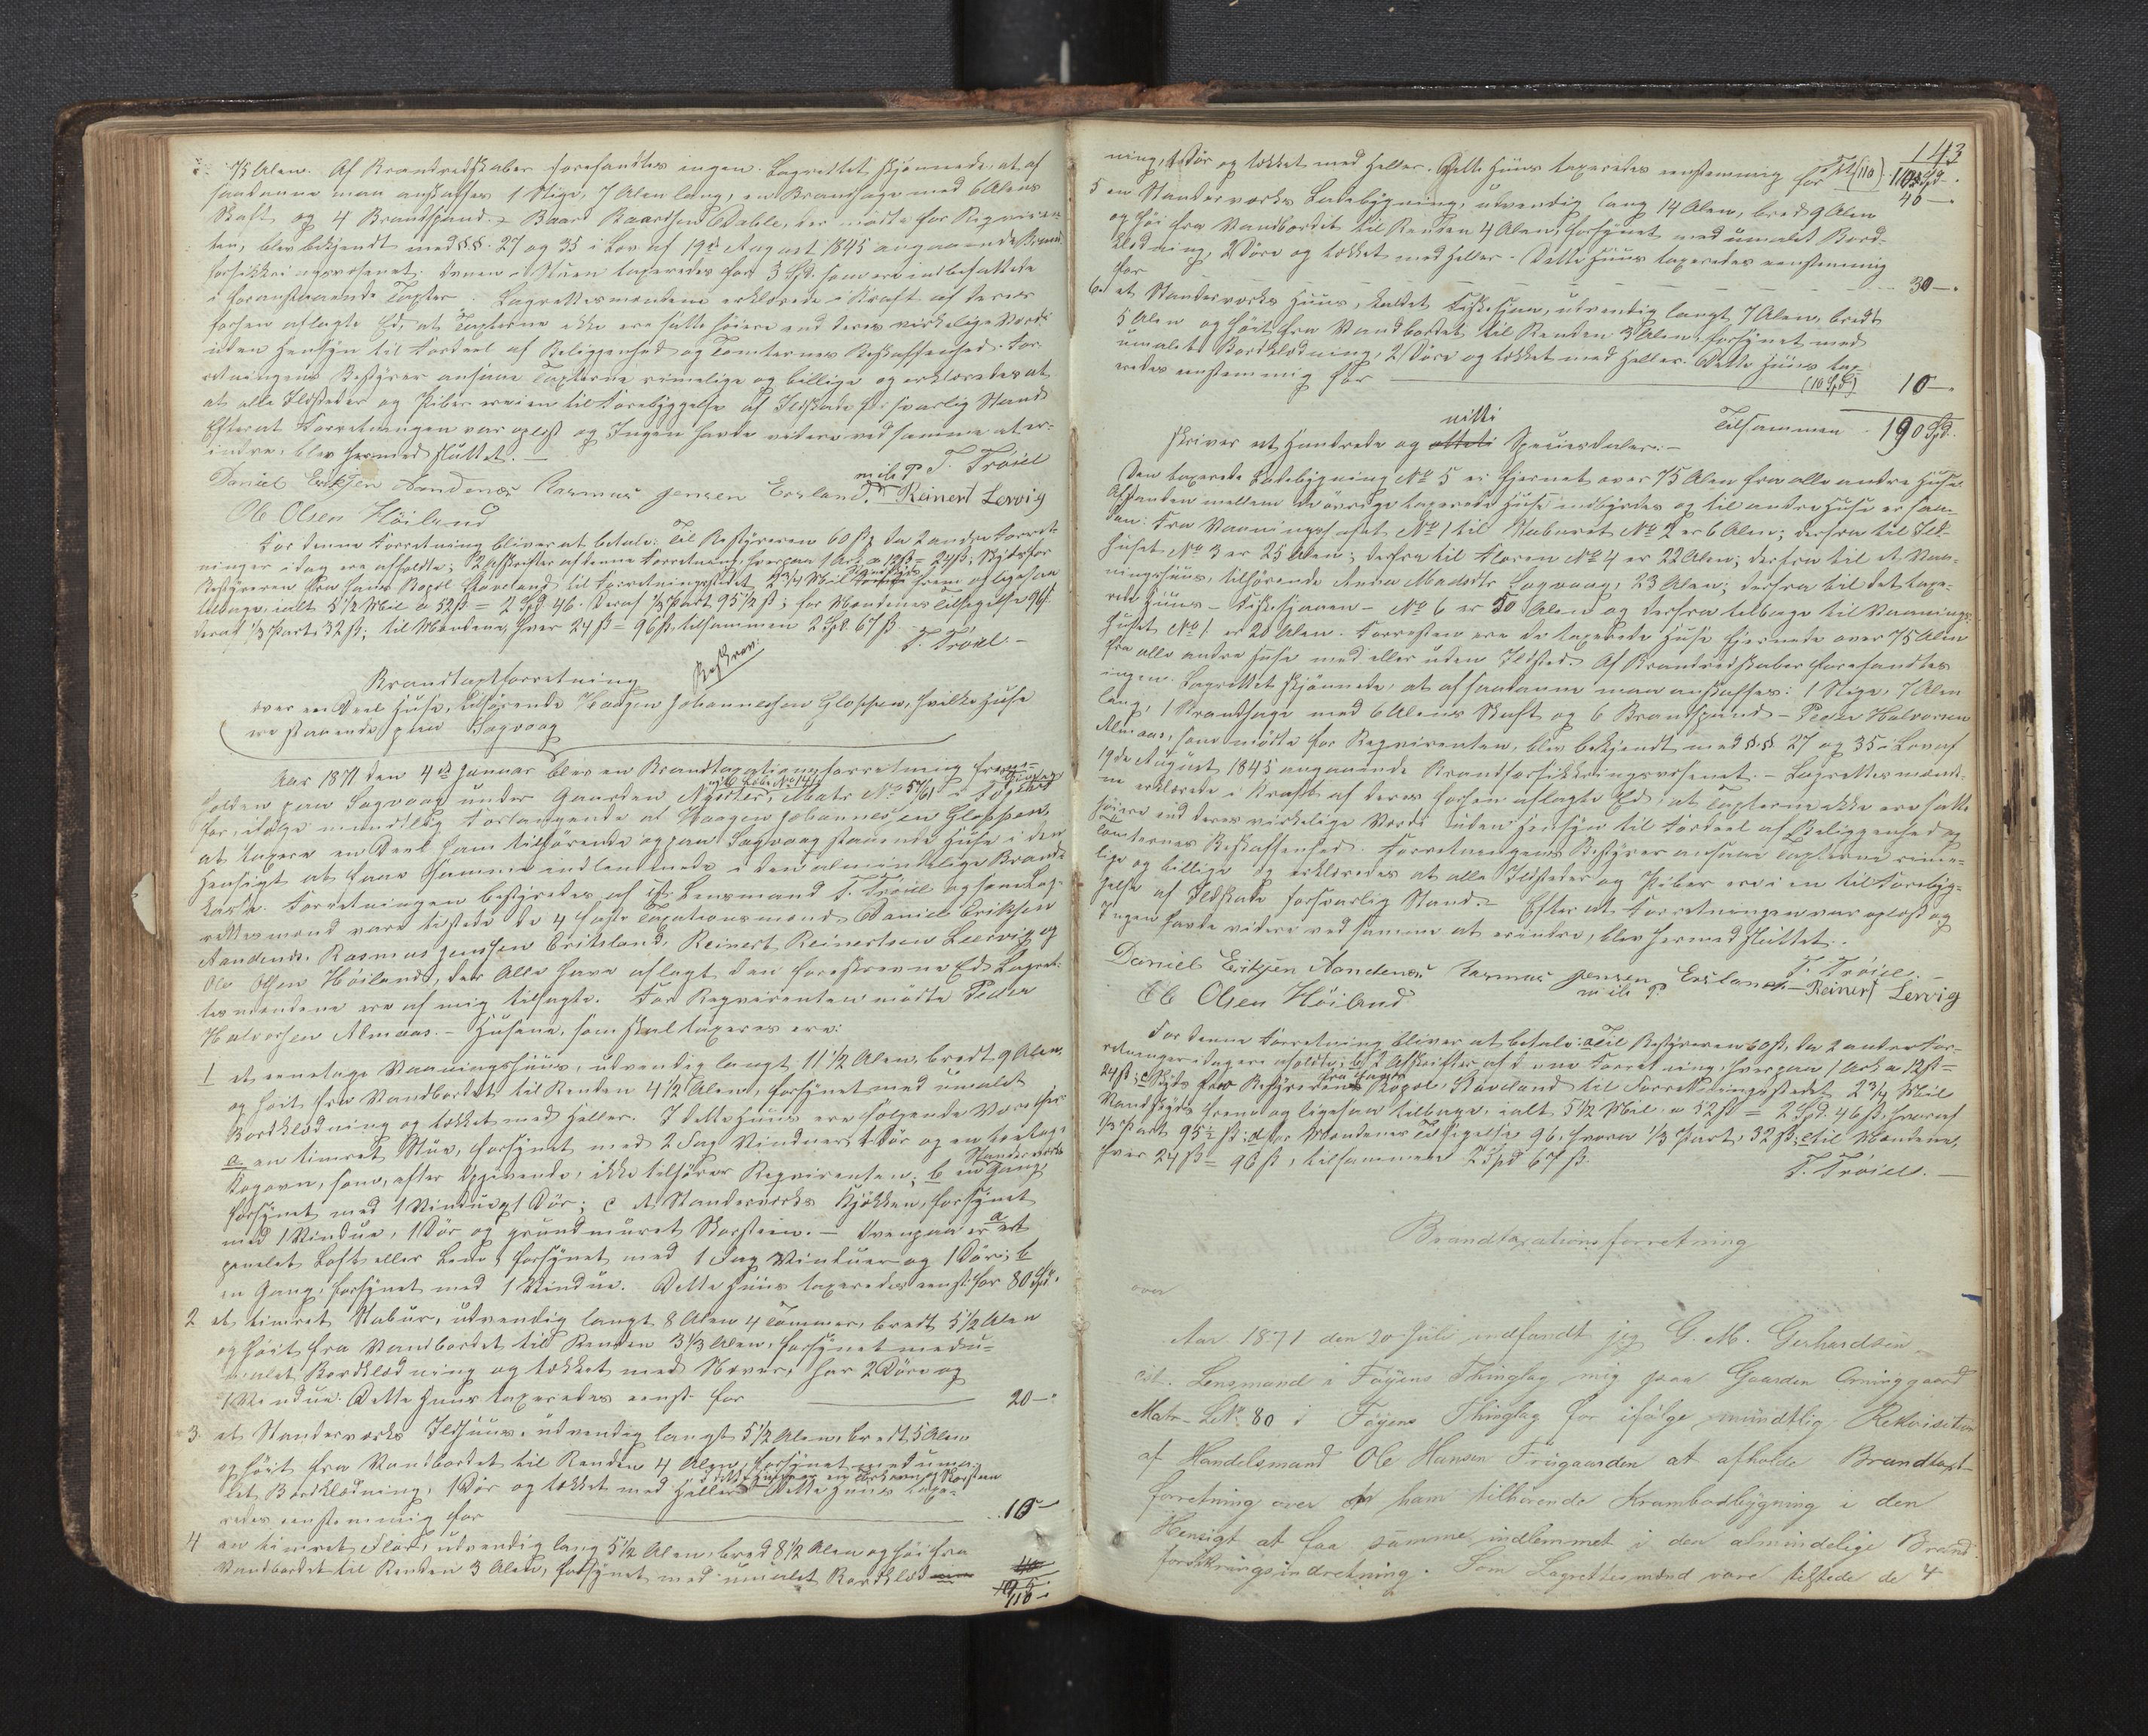 75 Alen. Af Brandredskaber forefandtes ingen. Lagrettet skjønnede, at af
saadanne maa anskaffes 1 Stige, 7 Alen lang, en Brandhage med 6 Alens
Skaft og 4 Brandspand. Baard Baardsen Dable, der mødte for Reqviren-
ten, blev bekjendt med §§ 27 og 35 i Lov af 19de August 1845 angaaende Brand-
forsikkringsvæsenet. Ovnen i Stuen taxeredes for 3 Spd. som ere indbefattede
i foranstaaende Taxter. Lagrettesmændene erklærede i Kraft af deres
forhen aflagte Ed, at Taxterne ikke ere satte høiere end deres virkelige Værdi
uden Hensyn til Fordeel af Beliggenhed og Tomternes Beskaffenhed. For-
retningens Bestyrer ansaae Taxterne rimelige og billige og erklæredes at
at alle Ildsteder og Piber ere i en til Forebyggelse af Ildskade forsvarlig Stand
Efterat Forretningen var oplæst og Ingen havde videre ved samme at er-
indre, blev hermed sluttet.
T. Tröiel
Daniel Eriksen Aandenes Rasmus Jensen Eesland. m i l P Reinert Lervig
Ole Olsen Höiland
For denne Forretning bliver at betale: Til Bestyreren 60 ß, da 2 andre Forret-
ninger idag ere afholdte; 2 Afskrifter af denne Forretning, hvorpaa 1 Ark a 12 ß = 24 ß; Skyds for
Bestyreren fra hans Bopæl Haveland til Forretningsstedet 2 3/4 Miil Vandskyds frem og ligesaa
tilbage, ialt 5 1/2 Miil a 52 ß = 2 Spd 46. Deraf 1/3 Part 95 1/2 ß; for Mændenes Tilsigelse 96 ß
deraf 1/3 Part 32 ß; til Mændene, hver 24 ß = 96 ß, tilsammen 2 Spd. 67 ß
T. Tröiel
Brandtaxtforretning
Beskrev.
over en Deel Huse, tilhørende Haagen Johannessen Gloppen, hvilke Huse
ere staaende paa Sagvaag
Aar 1871 den 4de Januar blev en Brandtaxationsforretning frem-
holden paa Sagvaag under Gaarden Nysæter, Matr No 57/61 i Føyens Thinglag
for, ifølge mundtlig Forlangende af Haagen Johannessen Gloppen,
at taxere en Deel ham tilhørende og paa Sagvaag staaende Huse i den
Hensigt at faae Samme indlemmede i den almindelige Brand-
kasse. Forretningen bestyredes af cst. Lensmand T. Tröiel og som Lag-
rettesmænd vare tilstede de 4 faste Taxationsmænd Daniel Eriksen
Aandenes, Rasmus Jenssen Eritsland, Reinert Reinertsen Leervig og
Ole Olsen Høiland, der Alle have aflagt den foreskrevne Ed. Lagret-
tesmændene ere af mig tilsagte. For Reqvirenten mødte Peder
Halvorsen Almaas. Husene, som skal taxeres ere:
1 et eenetages Vaaningshuus, udvendig langt 11 1/2 Alen, bredt 9 Alen
og høit fra Vandbordet til Renden 4 1/2 Alen, forsynet med umalet
Bordklædning og tækket med Heller. I dette Huus ere følgende Værelser
a. en timret Stue, forsynet med 2 Fag Vinduer, 1 Dør og en toetages
Kogovn, som, efter Opgivende, ikke tilhører Reqvirenten; b en Standerværks Gang,
forsynet med 1 Vindue og 1 Dør; c et Standerværks Kjøkken, forsynet
med 1 Vindue, 1 Dør og grundmuret Skorsteen. - Ovenpaa er a et
panelet Loft eller Lem, forsynet med 1 Fag Vinduer og 1 Dør; b
en Gang, forsynet med 1 Vindue. Dette Huus taxeredes eenst. for 80 Spd.
2 et timret Stabur, udvendig langt 8 Alen 4 Tommer, bredt 5 1/2 Alen
og høit fra Vandbordet til Renden 3 1/3 Alen, forsynet med u-
malet Bordklædning og tækket med Næver, har 2 Døre og
1 Vindue. Dette Huus taxeredes eenst. for 20 -
3. et Standerværks Ildhuus, udvendig langt 5 1/2 Alen, bredt 5 Alen
og høit fra Vandbordet til Renden 4 Alen, forsynet med uma-
let Bordklædning, 1 Dør og tækket med Heller. Dette Huus taxe-
redes eenstemmig for 10 -
4 en timret Flor, udvendig lang 5 1/2 Alen, bred 8 1/2 Alen og høi fra
Vandbordet til Renden 3 Alen, forsynet med umalet Bordklæd-
110 -
143
ning, 1 Dør og tækket med Heller. Dette Huus taxeredes eenstemmig for 40 -
5 en Standerværks Ladebygning, udvendig lang 14 Alen, bred 9 Alen
og høi fra Vandbordet til Renden 4 Alen, forsynet med umalet Bord-
klædning, 2 Døre og tækket med Heller. Dette Huus taxeredes eenstemmig
for 30 -
6. et Standerværks Huus, kaldet Fiskesjaaen, udvendig langt 7 Alen, bredt
5 Alen og høit fra Vandbordet til Renden 3 Alen, forsynet med
umalet Bordklædning, 2 Døre og tækket med Heller. Dette Huus tax-
eredes eenstemmig for (10 Spd) 10 -
Tilsammen 190 Spd.
skriver et Hundrede og nitti Speciesdaler. -
Den taxerede Ladebygning No 5 er fjernet over 75 Alen fra alle andre Huse
Afstanden mellem de øvrige taxerede Huse indbyrdes og til andre Huse er saa-
dan: Fra Vaaningshuset No 1 til Staburet No 2 er 6 Alen; derfra til Ild-
huset No 3 er 25 Alen; derfra til Floren No 4 er 22 Alen; derfra til et Vaa-
ningshuus, tilhørende Anna Madsdtr Sagvaag, 23 Alen; derfra til det taxe-
rede Huus - Fiskesjaaen - No 6 er 50 Alen og derfra tilbage til Vaanings-
huset No 1 er 20 Alen. Forresten ere de taxerede Huse fjernede over 75 Alen
fra alle andre Huse med eller uden Ildsted. Af Brandredskaber forefandtes
ingen. Lagrettet skjønnede, at af saadanne maa anskaffes: 1 Stige, 7 Alen
lang, 1 Brandhage med 6 Alens Skaft og 6 Brandspand - Peder Halvorsen
Almaas, som mødte for Reqvirenten, blev bekjendt med §§ 27 og 35 i Lov af
19de August 1845 angaaende Brandforsikkringsvæsenet. - Lagrettesmænde-
ne erklærede i Kraft af deres forhen aflagte Ed, at Taxterne ikke ere satte
høiere end deres virkelige Værdi uden Hensyn til Fordeel af Beliggenhed og
Tomternes Beskaffenhed. Forretningens Bestyrer ansaae Taxterne rime-
lige og billige og erklæredes at alle Ildsteder og Piber ere i en til Forebyg-
gelse af Ildskade forsvarlig Stand. - Efterat Forretningen var oplæst og
Ingen havde videre ved samme at erindre, blev hermed sluttet.
T. Tröiel. -
Daniel Eriksen Aandenes Rasmus Jensen Eesland - Reinert Lervig
Ole Olsen Höiland m i l P.
For denne Forretning bliver at betale: a Til Bestyreren 60 ß, da 2 andre For-
retninger idag ere afholdte; b 2 Afskrifter af denne Forretning, hvorpaa 1 Ark a 12 ß =
24 ß; c Skyds for Bestyreren fra hans Bopæl Haveland til Forretningsstedet 2 3/4 Miil
Vandskyds frem og ligesaa tilbage, ialt 5 1/2 Miil a 52 ß = 2 Spd. 46 ß, hvoraf
1/3 Part 95 1/2 ß; d for Mændenes Tilsigelse 96, hvoraf 1/3 Part, 32 ß; e til Mændene,
hver 24 ß = 96 ß, tilsammen 2 Spd 67 ß.
T. Tröiel. -
Brandtaxationsforretning
over
Aar 1871 den 20 Juli indfandt jeg G. M. Gerhardsen
cst. Lensmand i Føyens Thinglag mig paa Gaarden Orninggaard
Matr-LNo. 80 i Føyens Thinglag for ifølge mundtlig Rekvisition
af Handelsmand Ole Hansen Friisgaarden at afholde Brandtaxt-
forretning over en ham tilhørende Krambodbygning i den
Hensigt at faa samme indlemmet i den almindelige Brand-
forsikringsindretning. Som Lagrettesmænd vare tilstede de 4